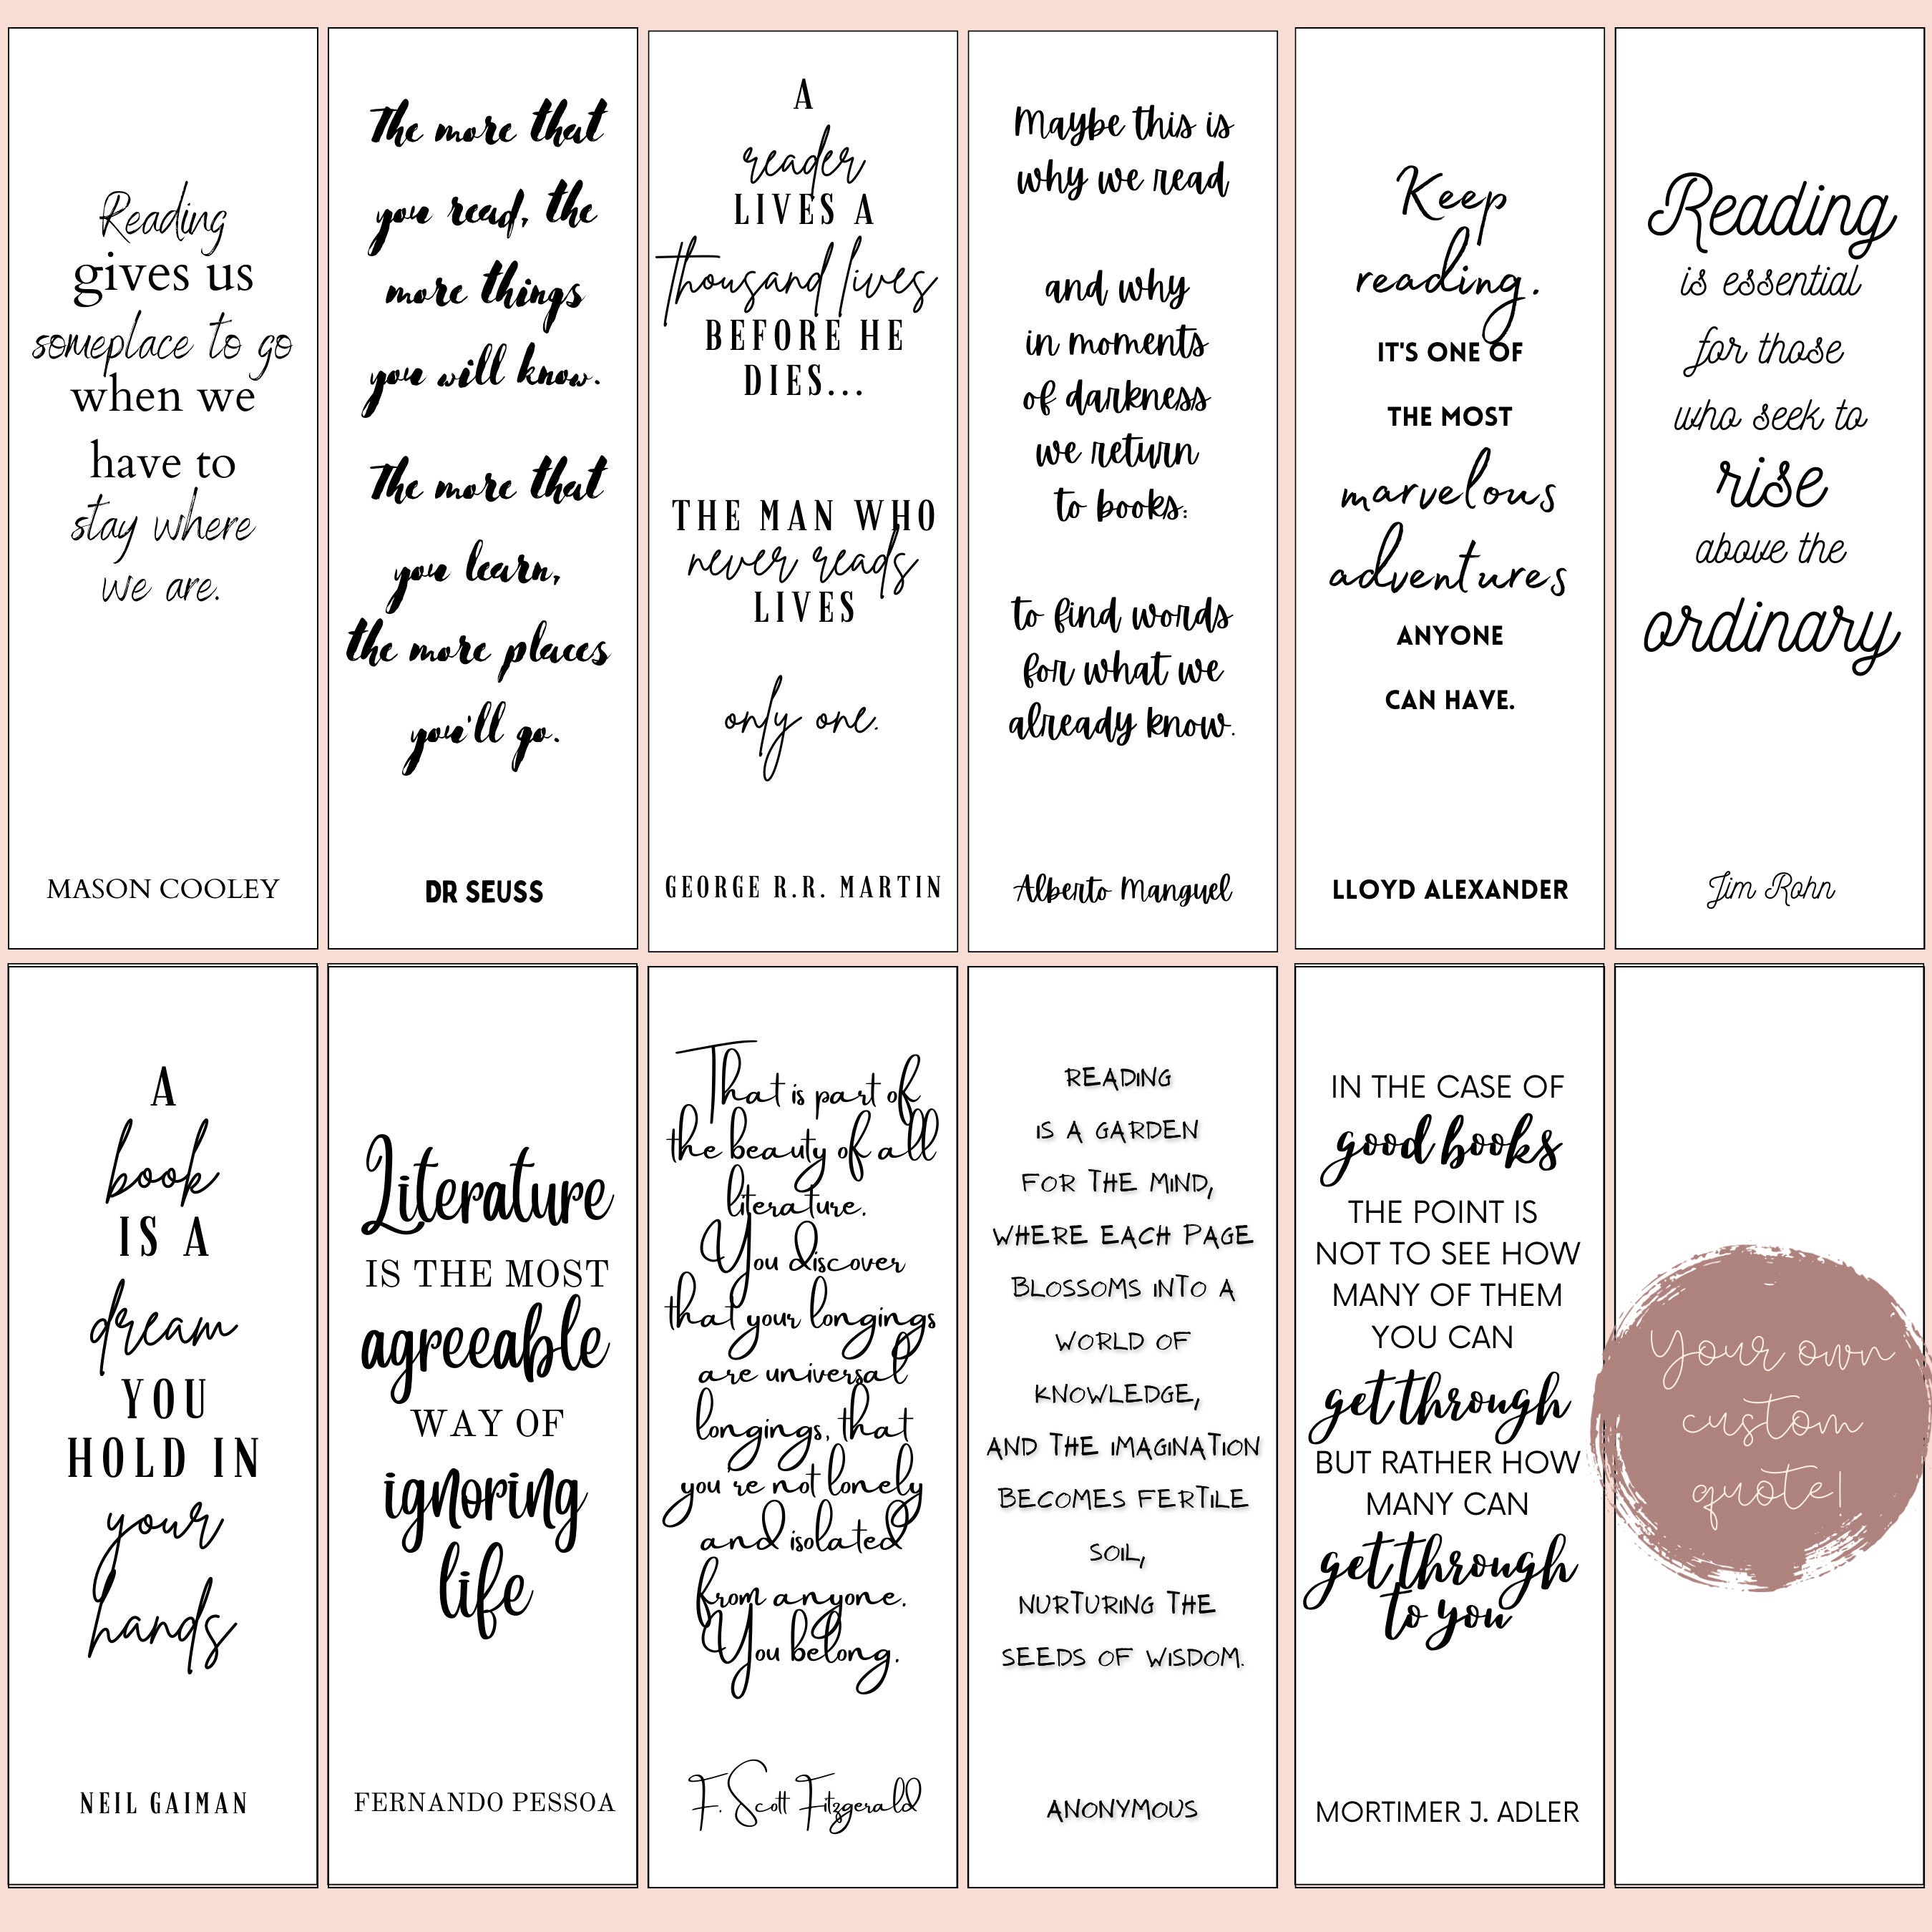 Reading
gives us
someplace to go
when we
have to
stay where
we are.
MASON COOLEY
The more that
you read, the
more things
you will know.
The more that
you learn,
the more places
you'll go.
DR SEUSS
A
reader
LIVES A
thousand lives
BEFORE HE
DIES...
THE MAN WHO
never reads
LIVES
only one.
GEORGE R.R. MARTIN
Maybe this is
why we read
and why
in moments
of darkness
we return
to books:
to find words
for what we
already know.
Alberto Manguel
Keep
reading.
IT'S ONE OF
THE MOST
marvelous
adventures
ANYONE
CAN HAVE.
LLOYD ALEXANDER
Reading
is essential
for those
who seek to
rise
above the
ordinary
Jim Rohn
A
book
IS A
dream
YOU
HOLD IN
your
hands
NEIL GAIMAN
Literature
IS THE MOST
agreeable
WAY OF
ignoring
life
FERNANDO PESSOA
That is part of
the beauty of all
literature.
You discover
that your longings
are universal
longings, that
you're not lonely
and isolated
from anyone.
You belong.
F. Scott Fitzgerald
READING
IS A GARDEN
FOR THE MIND,
WHERE EACH PAGE
BLOSSOMS INTO A
WORLD OF
KNOWLEDGE,
AND THE IMAGINATION
BECOMES FERTILE
SOIL,
NURTURING THE
SEEDS OF WISDOM.
ANONYMOUS
IN THE CASE OF
good books
THE POINT IS
NOT TO SEE HOW
MANY OF THEM
YOU CAN
get through
BUT RATHER HOW
MANY CAN
get through
to you
MORTIMER J. ADLER
Your own
custom
quote!